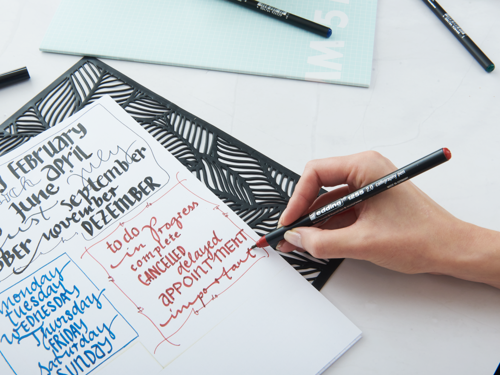 February
March April
June July
August September
October November
DEZEMBER
to do
in Progress
complete
CANCELLED delayed
APPOINTMENT
important
monday
Tuesday
WEDNESDAY
Thursday
FRIDAY
Saturday
SUNDAY
edding 1255 2.0 calligraphy pen